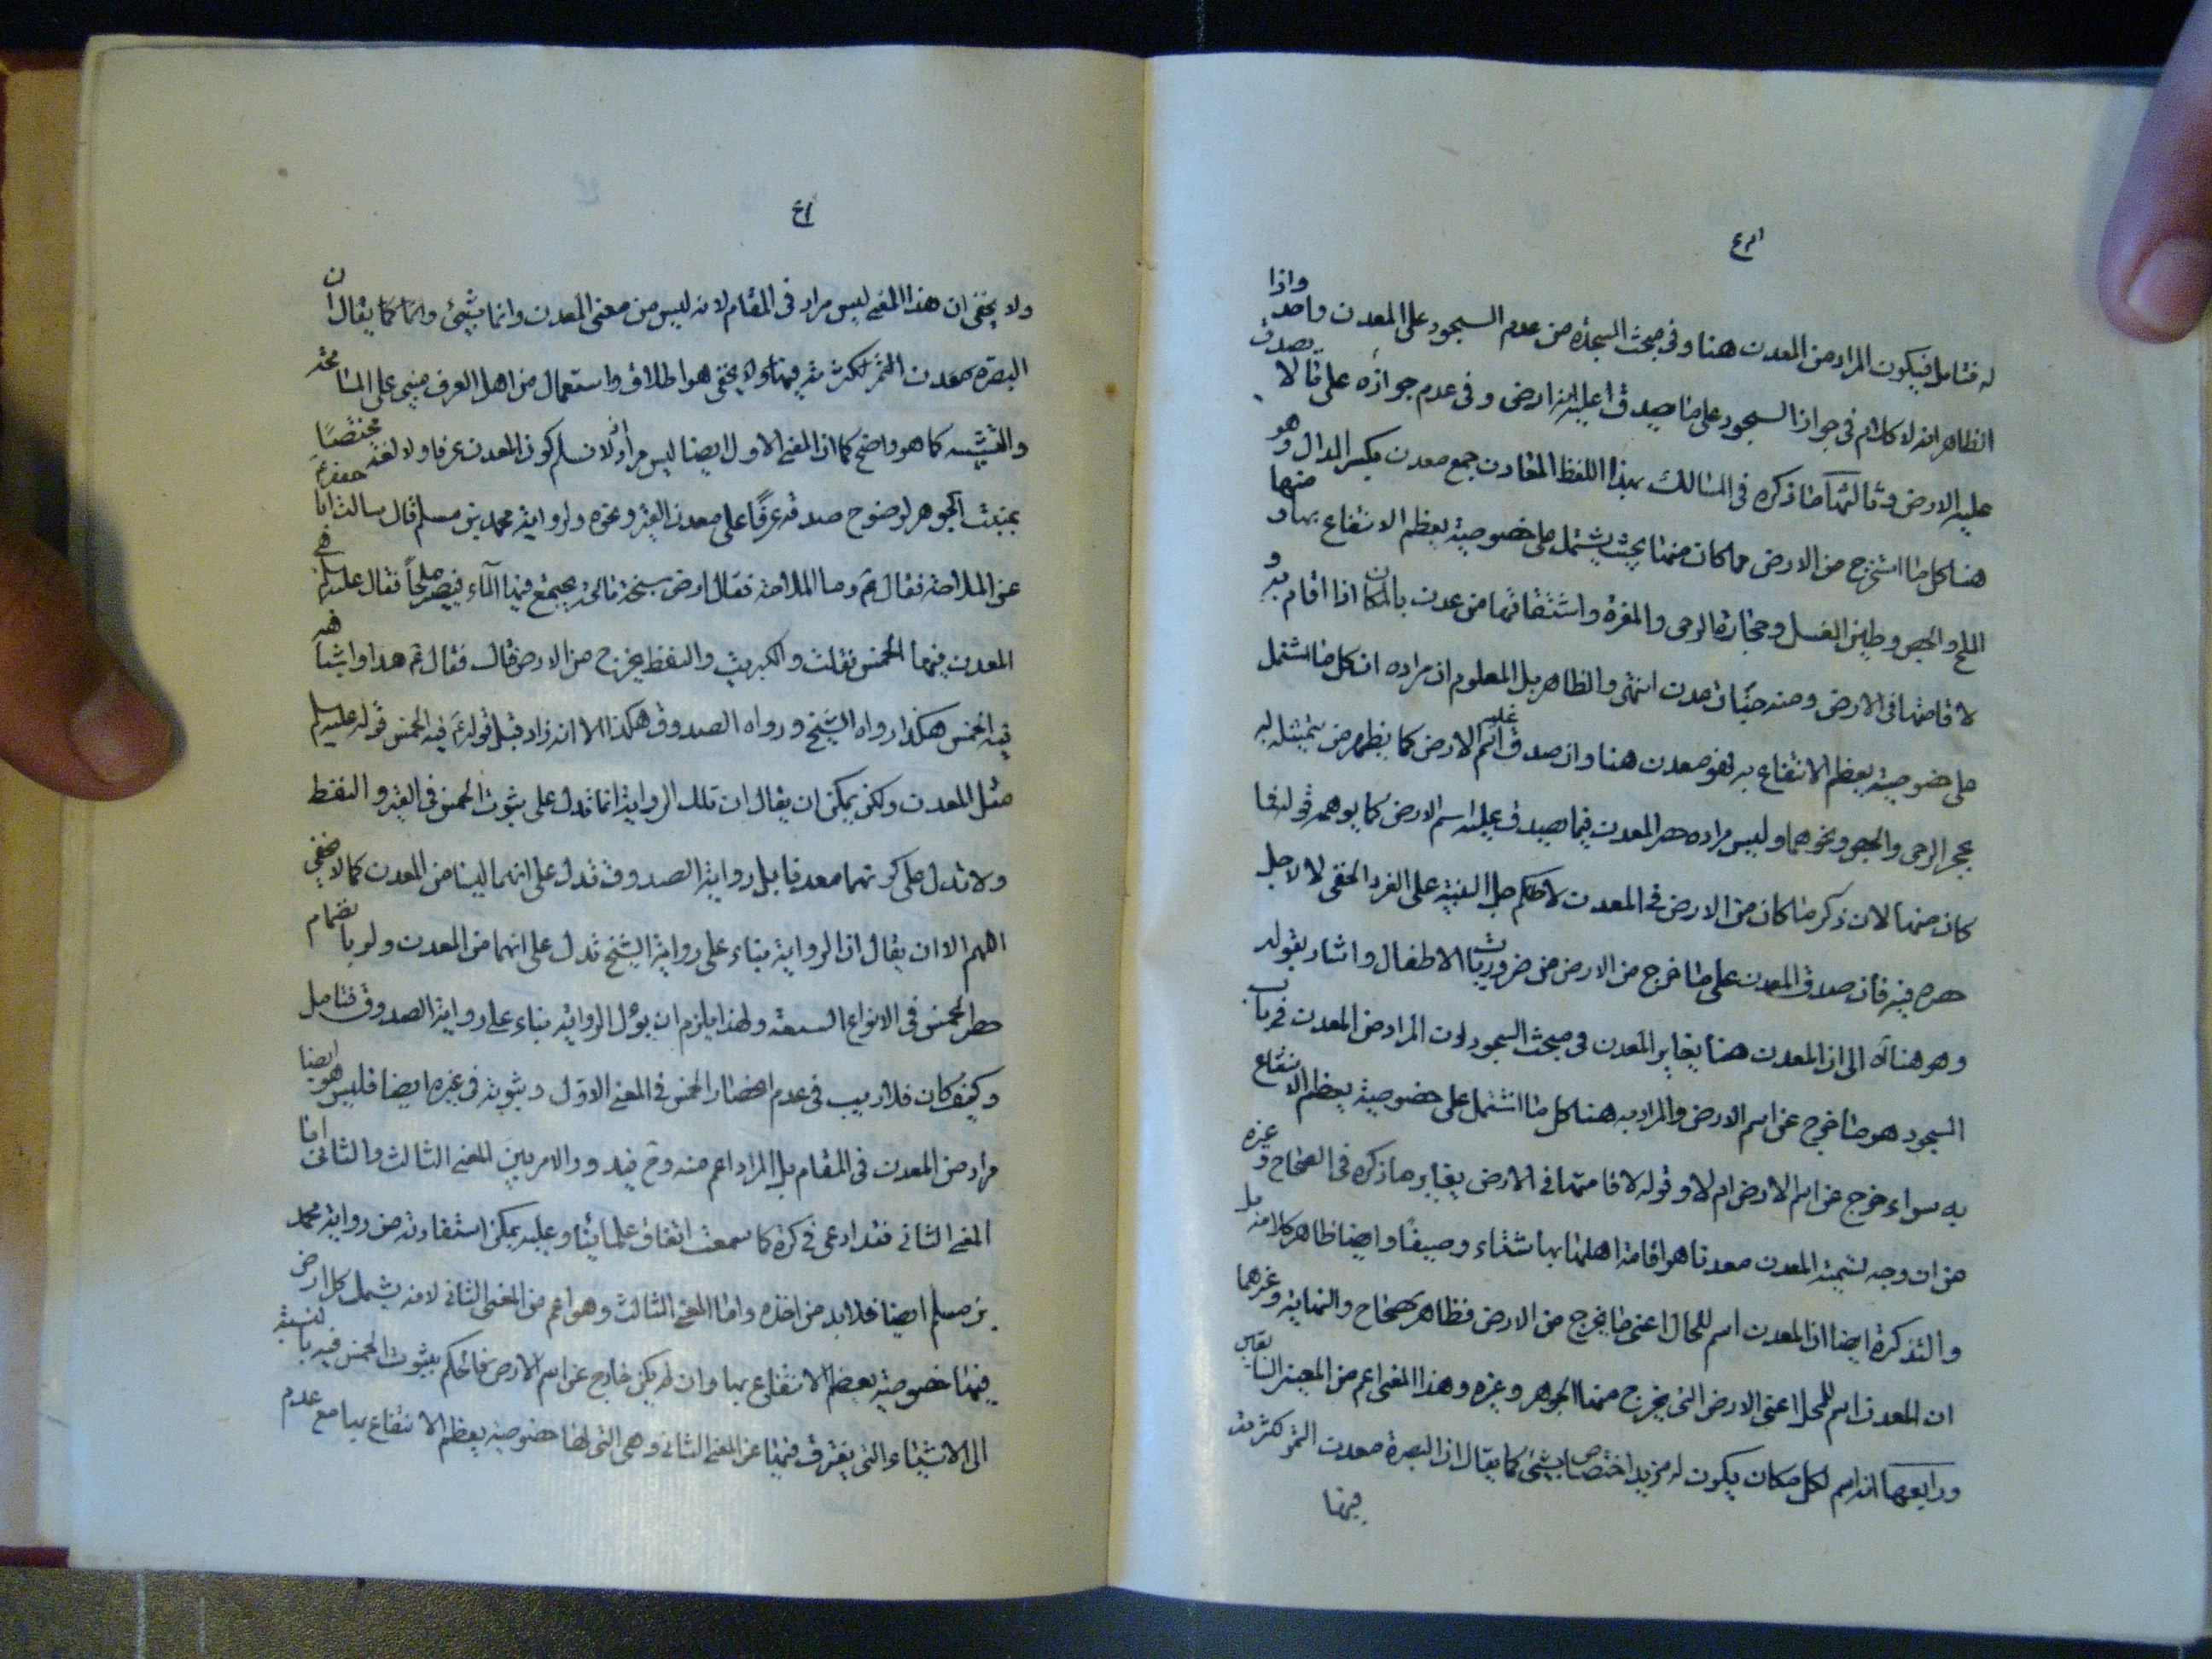 له فتامل فيكون المراد من المعدن هنا وفى مبحث السجدة من عدم السجود على المعدن واحد واذا
الظاهر انه لا كلام فى جواز السجود على ما يصدق عليه انه ارض وفى عدم جوازه على ما لا يصدق
عليه الارض وثالثها ما ذكره فى المسالك بهذا اللفظ المعادن جمع معدن بكسر الدال وهو
هنا كل ما استخرج من الارض مما كان منها بحيث يشتمل على خصوصية يعظم الانتفاع بها ومنها
الملح والجص وطين الغسل وحجارة الرحى والمغرة واشتقاقها من عدن بالمكان اذا اقام به و
لاقامتها فى الارض ومنه جنات عدن انتهى والظاهر بل المعلوم ان مراده ان كل ما اشتمل
على خصوصية يعظم الانتفاع به فهو معدن هنا وان صدق عليه اسم الارض كما يظهر من تمثيله له
بحجر الرحى والجص ونحوهما وليس مراده حصر المعدن فيما يصدق عليه اسم الارض كما يوهمه قوله مما
كان منها لان ذكر ما كان من الارض فى المعدن لاجل التنبيه على الفرد الخفى لا لاجل
حصره فيه فان صدق المعدن على ما خرج من الارض من ضروريات الاطفال واشار بقوله
وهو هنا آه الى ان المعدن هنا يغاير المعدن فى مبحث السجود لان المراد من المعدن فى باب
السجود هو ما خرج عن اسم الارض والمراد به هنا كل ما اشتمل على خصوصية يعظم الانتفاع
به سواء خرج عن اسم الارض ام لا وقوله لاقامتها فى الارض يغاير ما ذكره فى الصحاح وغيره
من ان وجه تسمية المعدن معدنا هو اقامة اهلها بها شتاء وصيفا وايضا ظاهر كلامه بل
والتذكرة ايضا ان المعدن اسم للحال اعنى ما يخرج من الارض فظاهر الصحاح والنهاية وغيرهما
ان المعدن اسم للمحل اعنى الارض التى يخرج منها الجوهر وغيره وهذا المعنى اعم من المعنيين السابقين
ورابعها انه اسم لكل مكان يكون له مزيد اختصاص بشئ كما يقال ان البصرة معدن التمر لكثرته
فيها
ولا يخفى ان هذا المعنى ليس مراد فى المقام لانه ليس من معنى المعدن وانما كما يقال ان
البصرة معدن التمر لكثرته فيها ولا يخفى هو اطلاق واستعمال من اهل العرف مبنى على المسامحة
والتشبيه كما هو واضح كما ان المعنى الاول ايضا ليس مراد لانه لا نسلم كون المعدن عرفا ولا لغة مختصا
بمنبت الجوهر لوضوح صدقه عرفا على معدن القير ونحوه ولرواية محمد بن مسلم قال سالت ابا جعفر ع
عن الملاحة فقال ع وما الملاحة فقال ارض سبخة مالحة يجتمع فيها الماء فيصير ملحا فقال عليه السلم هى
المعدن فيها الخمس فقلت والكبريت والنفط يخرج من الارض قال فقال ع هذا واشباهه
فيه الخمس هكذا رواه الشيخ ورواه الصدوق هكذا الا انه زاد قبل قوله ع فيه الخمس قوله عليه السلم
مثل المعدن ولكن يمكن ان يقال ان تلك الرواية انما تدل على ثبوت الخمس فى القير والنفط
ولا تدل على كونهما معدنا بل رواية الصدوق تدل على انهما ليسا من المعدن كما لا يخفى
اللهم الا ان يقال ان الرواية بناء على رواية الشيخ تدل على انهما من المعدن ولو بانضمام
حصر الخمس فى الانواع السبعة ولهذا يلزم ان يؤل الرواية بناء على رواية الصدوق فتامل
وكيف كان فلا ريب فى عدم انحصار الخمس فى المعنى الاول وثبوته فى غيره ايضا فليس هو ايضا
مراد من المعدن فى المقام بل المراد اعم منه وح فيدور الامر بين المعنى الثالث والثانى اما
المعنى الثانى فقد ادعى فى كرة كما سمعت اتفاق علمائنا وعليه يمكن استفادته من رواية محمد
بن مسلم ايضا فلا بد من اخذه واما المعنى الثالث وهو اعم من المعنى الثانى لانه يشمل كل ارض
فيها خصوصية يعظم الانتفاع بها وان لم يكن خارج عن اسم الارض فالحكم بثبوت الخمس فيه بالنسبة
الى الاشياء التى يفترق فيها عن المعنى الثانى وهى التى لها خصوصية يعظم الانتفاع بها مع عدم